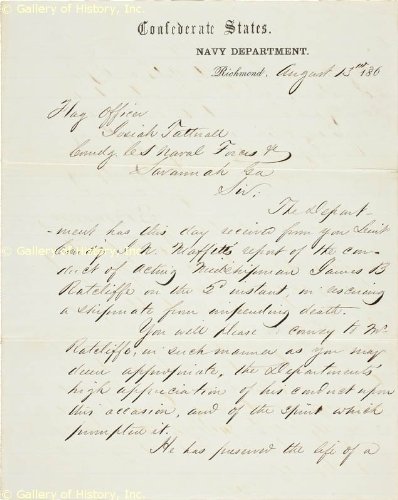 © Gallery of History, Inc.
Confederate States.
NAVY DEPARTMENT.
Richmond, August 13th 186
Flag Officer
Josiah Tattnall
Comdg CS Naval Forces &c
Savannah Ga
Sir:
The Depart-
-ment has this day received from you Lieut
Comdg J.N. Maffitt's report of the con-
duct of Acting Midshipman James B
Ratcliffe on the 5th instant, in rescuing
a shipmate from impending death.
You will please convey to Mr
Ratcliffe, in such manner as you may
deem appropriate, the Department's
high appreciation of his conduct upon
this occasion, and of the spirit which
prompted it.
He has preserved the life of a
© Gallery of History, Inc.